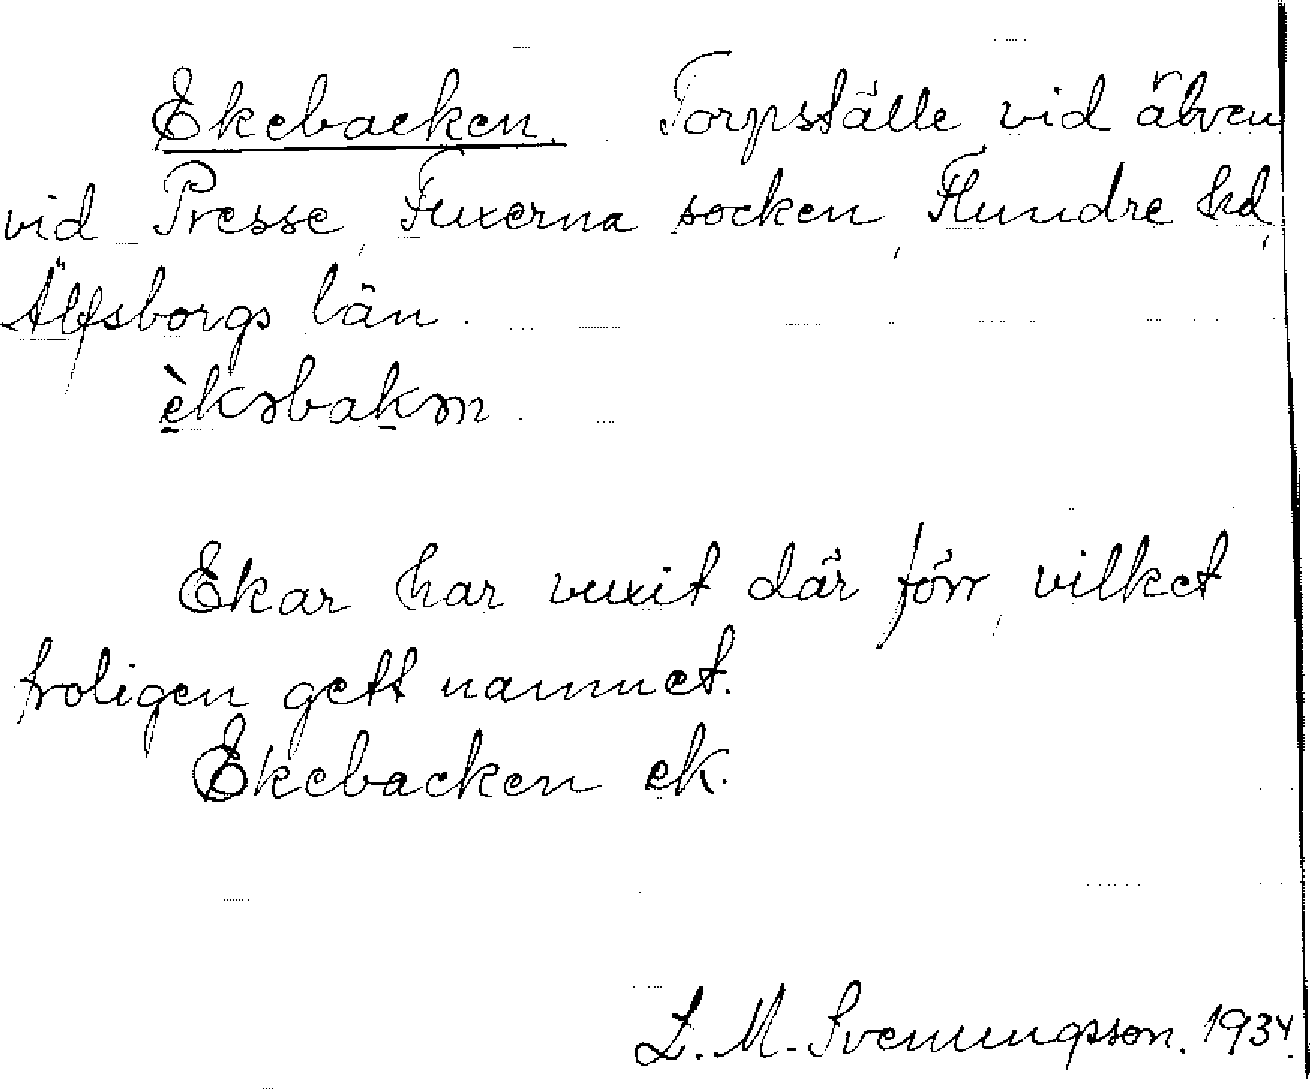 Ekebacken. Torpställe vid älven
vid Presse, Fuxerna socken, Flundre hd,
Älfsborgs län.
èkəbakən.
Ekar har vuxit där förr, vilket
troligen gett namnet.
Ekebacken ek.
L. M. Svenungsson. 1934.